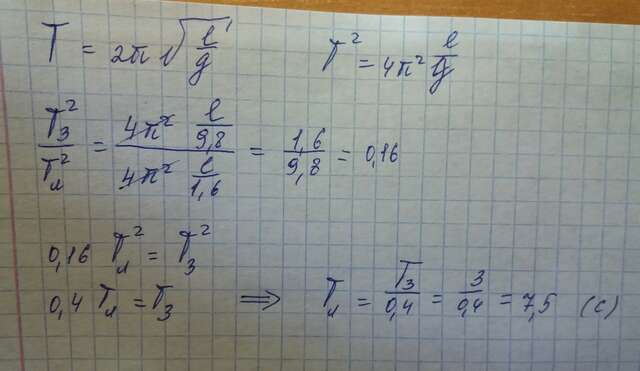 T = 2π√(l/g)    T² = 4π² l/g
Tз²/Tл² = (4π² l/9,8)/(4π² l/1,6) = 1,6/9,8 = 0,16
0,16 Tл² = Tз²
0,4 Tл = Tз ⇒ Tл = Tз/0,4 = 3/0,4 = 7,5 (с)